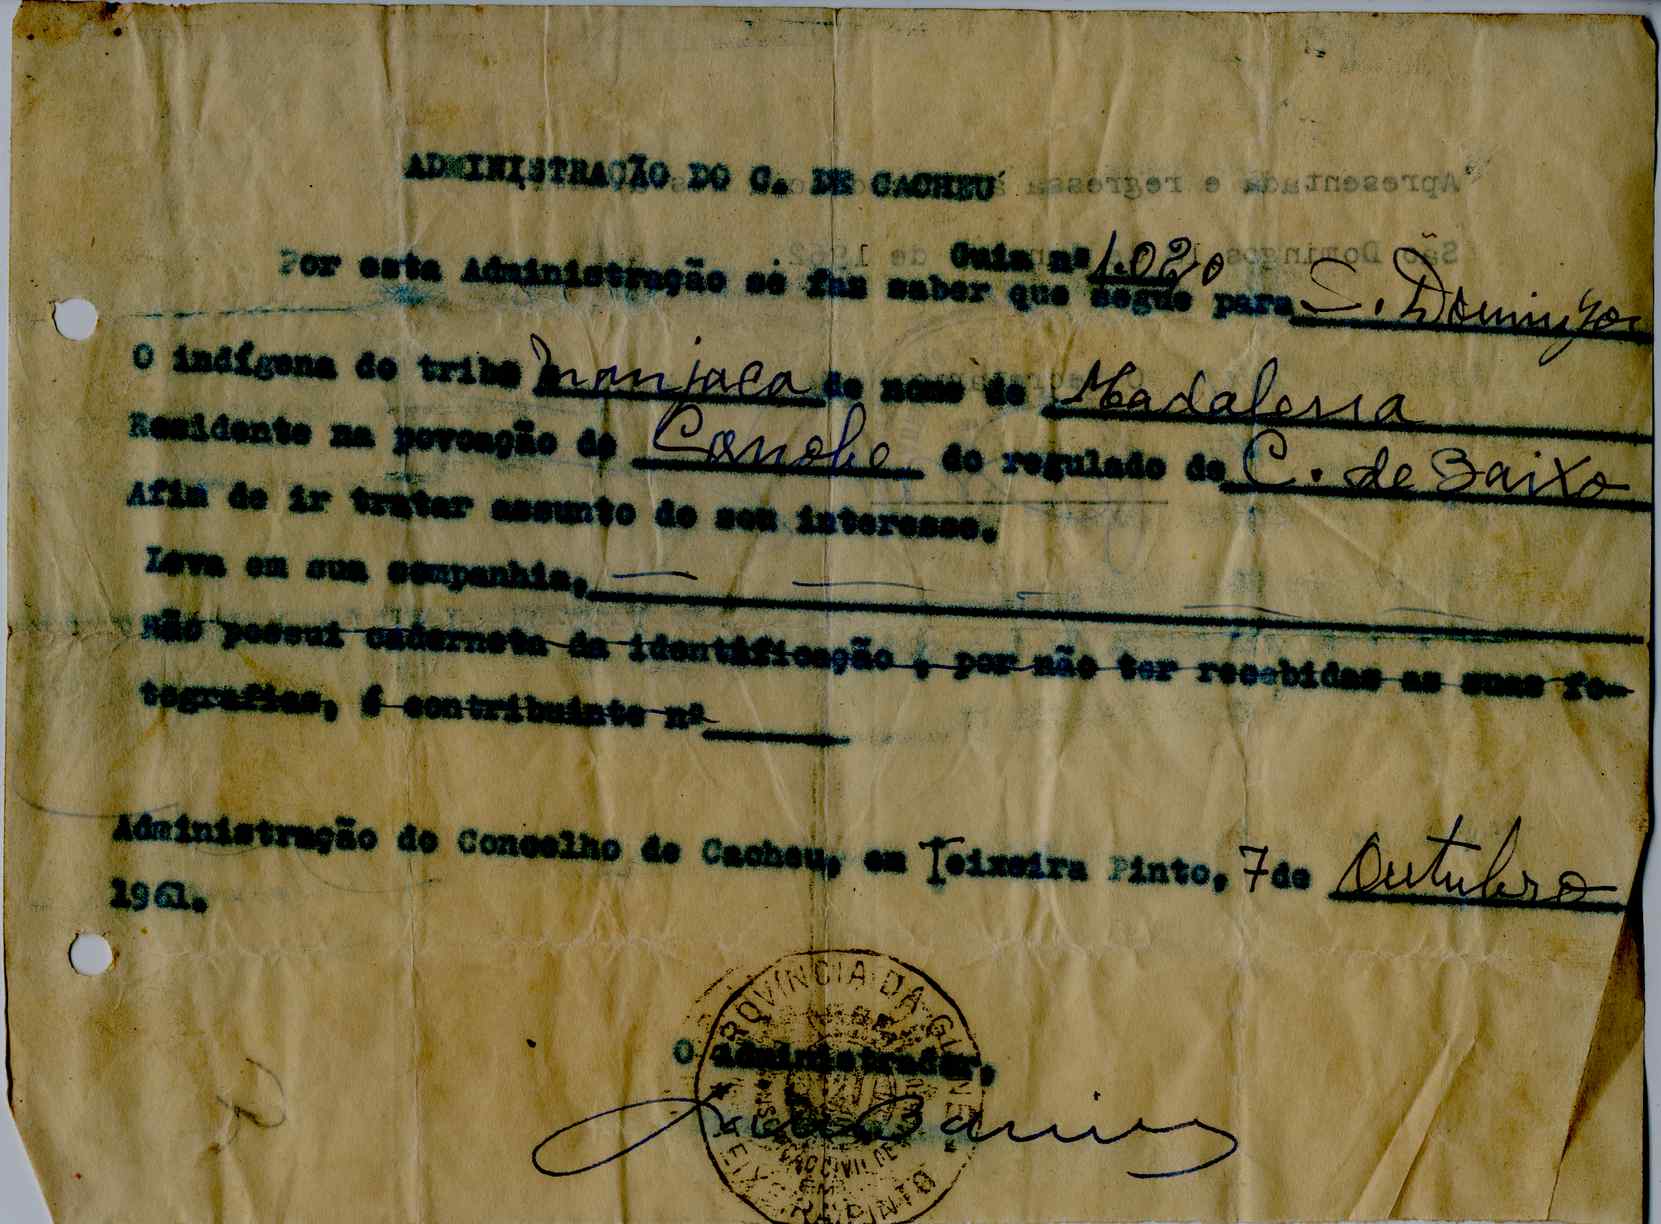 ADMINISTRAÇÃO DO C. DE CACHEU
Guia nº 1.020
Por esta Administração se faz saber que segue para S. Domingos
O indígena de tribo manjaca de nome de Madalena
Residente na povoação de Canobe do regulado de C. de Baixo
Afim de ir tratar assunto de seu interesse.
Leva em sua companhia,
Não possui caderneta da identificação, por não ter recebidas as suas fo-
tografias, é contribuinte nº
Administração do Concelho de Cacheu, em Teixeira Pinto, 7 de Outubro
1961.
O Administrador,
PROVÍNCIA DA GUINÉ
TEIXEIRA PINTO
Apresentada e regressa
São Domingos de 1962